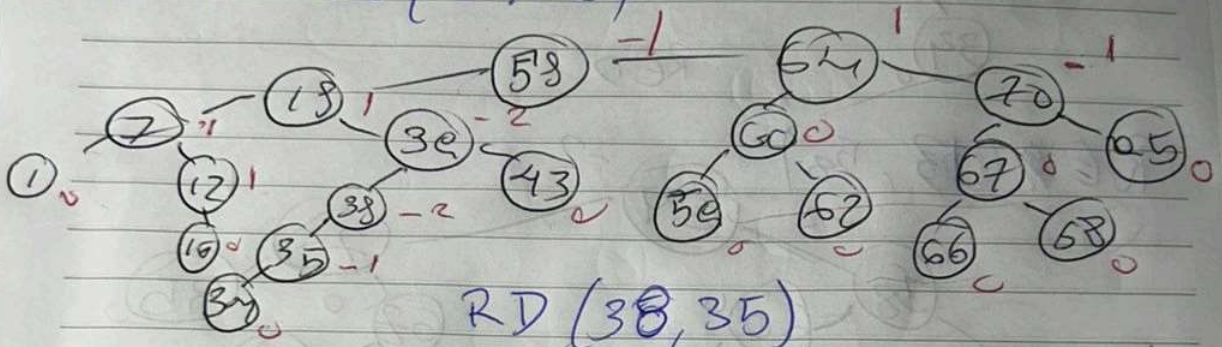 58 -1 64 1
18 1 70 -1
7 1 39 -2 60 0 95 0
1 0 12 1 43 0 67 0
38 -2 59 0 62 0
16 0 35 -1 66 0 68 0
34 0
RD (38,35)